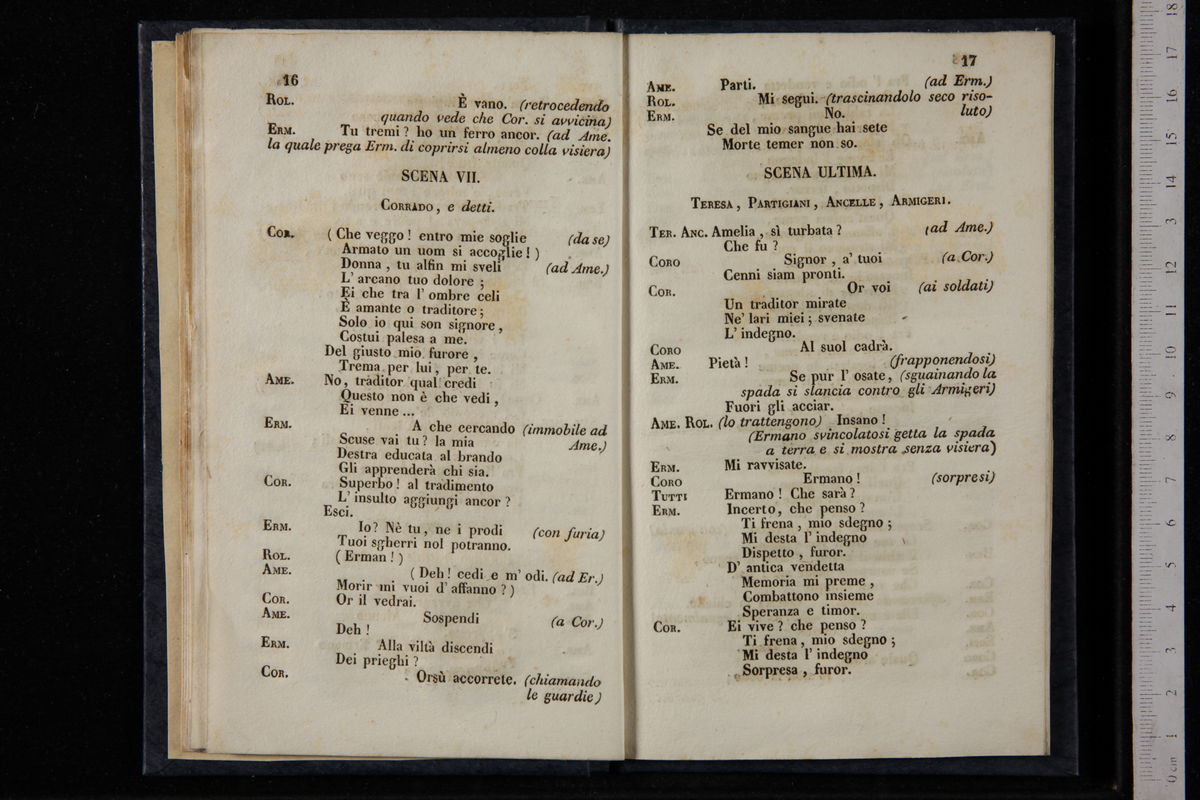 16
ROL. È vano. (retrocedendo
quando vede che Cor. si avvicina)
ERM. Tu tremi ? ho un ferro ancor. (ad Ame.
la quale prega Erm. di coprirsi almeno colla visiera)
SCENA VII.
CORRADO , e detti.
COR. ( Che veggo ! entro mie soglie (da se)
Armato un uom si accoglie ! )
Donna , tu alfin mi sveli (ad Ame.)
L' arcano tuo dolore ;
Ei che tra l' ombre celi
È amante o traditore ;
Solo io qui son signore ,
Costui palesa a me.
Del giusto mio furore ,
Trema per lui , per te.
AME. No, traditor qual credi
Questo non è che vedi ,
Ei venne ...
ERM. A che cercando (immobile ad
Scuse vai tu ? la mia Ame.)
Destra educata al brando
Gli apprenderà chi sia.
COR. Superbo ! al tradimento
L' insulto aggiungi ancor ?
Esci.
ERM. Io? Nè tu, ne i prodi (con furia)
Tuoi sgherri nol potranno.
ROL. ( Erman ! )
AME. ( Deh ! cedi e m' odi. (ad Er.)
Morir mi vuoi d' affanno ? )
COR. Or il vedrai.
AME. Sospendi (a Cor.)
Deh !
ERM. Alla viltà discendi
Dei prieghi ?
COR. Orsù accorrete. (chiamando
le guardie)
17
AME. Parti. (ad Erm.)
ROL. Mi segui. (trascinandolo seco riso-
ERM. No. luto)
Se del mio sangue hai sete
Morte temer non so.
SCENA ULTIMA.
TERESA , PARTIGIANI , ANCELLE , ARMIGERI.
TER. ANC. Amelia , sì turbata ? (ad Ame.)
Che fu ?
CORO Signor , a' tuoi (a Cor.)
Cenni siam pronti.
COR. Or voi (ai soldati)
Un traditor mirate
Ne' lari miei ; svenate
L' indegno.
CORO Al suol cadrà.
AME. Pietà ! (frapponendosi)
ERM. Se pur l' osate, (sguainando la
spada si slancia contro gli Armigeri)
Fuori gli acciar.
AME. ROL. (lo trattengono) Insano !
(Ermano svincolatosi getta la spada
a terra e si mostra senza visiera)
ERM. Mi ravvisate.
CORO Ermano ! (sorpresi)
TUTTI Ermano ! Che sarà ?
ERM. Incerto, che penso ?
Ti frena , mio sdegno ;
Mi desta l' indegno
Dispetto , furor.
D' antica vendetta
Memoria mi preme ,
Combattono insieme
Speranza e timor.
COR. Ei vive ? che penso ?
Ti frena , mio sdegno ;
Mi desta l' indegno
Sorpresa , furor.
0 cm 1 2 3 4 5 6 7 8 9 10 11 12 13 14 15 16 17 18